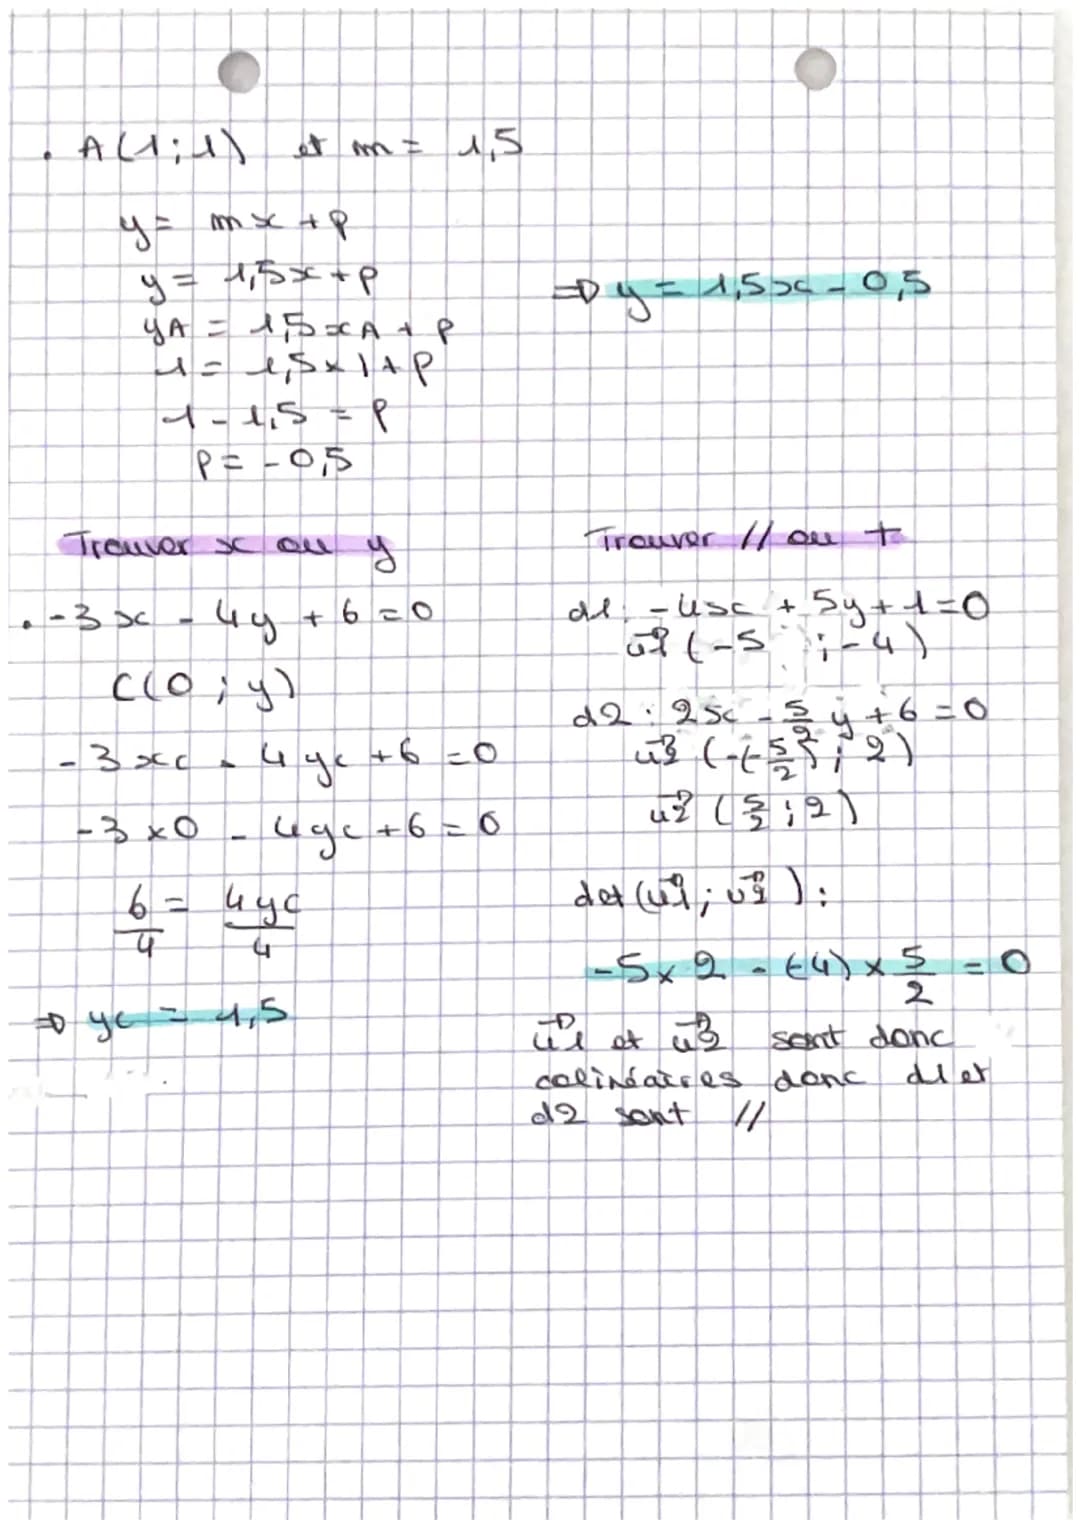 . A(1;1) et m = 1,5
y = mx + p
y = 1,5x + p
⇒ y = 1,5x - 0,5
yA = 1,5xA + p
1 = 1,5 × 1 + p
1 - 1,5 = p
p = -0,5
Trouver x ou y
. -3x - 4y + 6 = 0
C(0 ; y)
-3xc - 4yc + 6 = 0
-3 × 0 - 4yc + 6 = 0
6/4 = 4yc/4
⇒ yc = 1,5
Trouver // ou +
d1 : -4x + 5y + 1 = 0
u⃗1 (-5 ; -4)
d2 : 2x - 5/2 y + 6 = 0
u⃗2 (-(-5/2) ; 2)
u⃗2 (5/2 ; 2)
det (u⃗1 ; u⃗2) :
-5 × 2 - (-4) × 5/2 = 0
u⃗1 et u⃗2 sont donc
colinéaires donc d1 et
d2 sont //